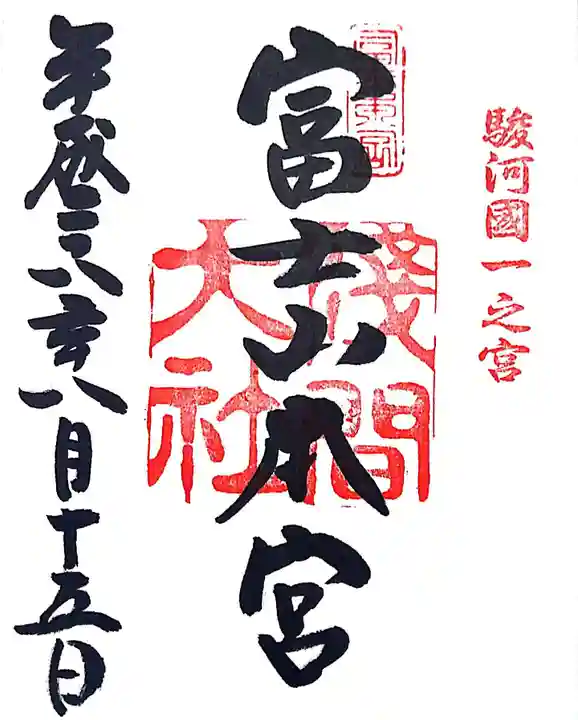 駿河國一之宮
富士山本宮
淺間大社
平成二八年八月十五日